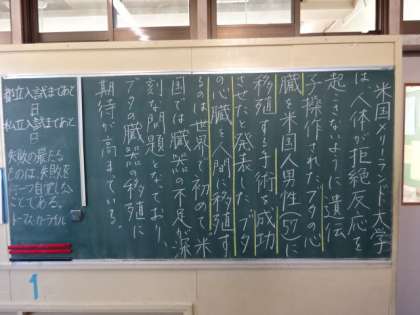 米国メリーランド大学
は、人体が拒絶反応を
起こさないように遺伝
子操作されたブタの心
臓を米国人男性(57)に
移植する手術を成功
させたと発表した。ブタ
の心臓を人間に移植す
るのは世界で初めて。米
国では臓器の不足が深
刻な問題となっており、
ブタの臓器の移植に
期待が高まっている。
都立入試まであと
日
私立入試まであと
日
失敗の最たる
ものは失敗を
一つ自覚しない
ことである。
トーマス・カーライル
1